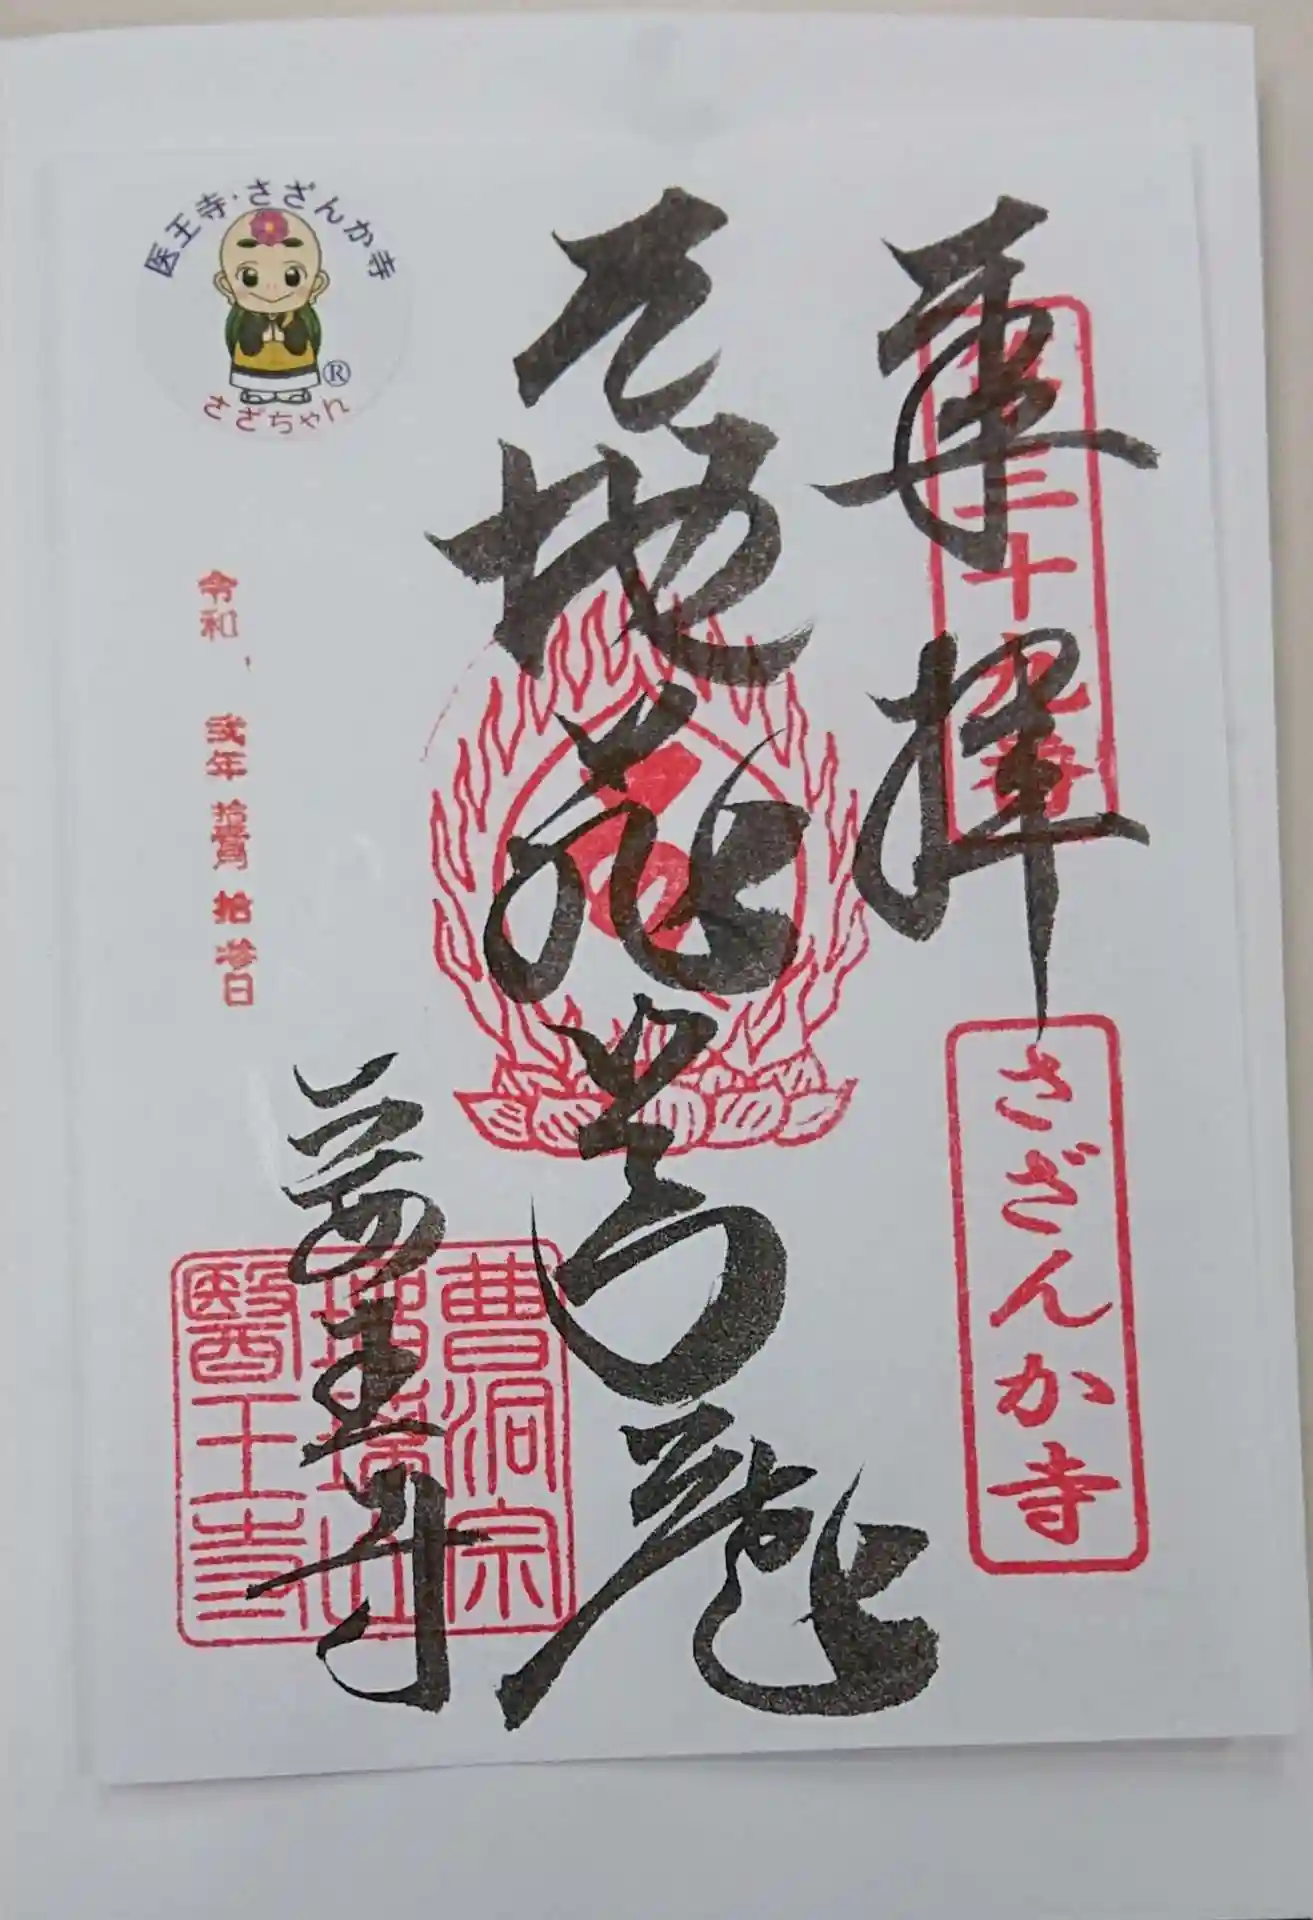 医王寺・さざんか寺
さざちゃん
®
奉拝
三十九番
さざんか寺
医王寺
曹洞宗
瑠璃山
醫王寺
令和 弐年 拾壹月 拾参日